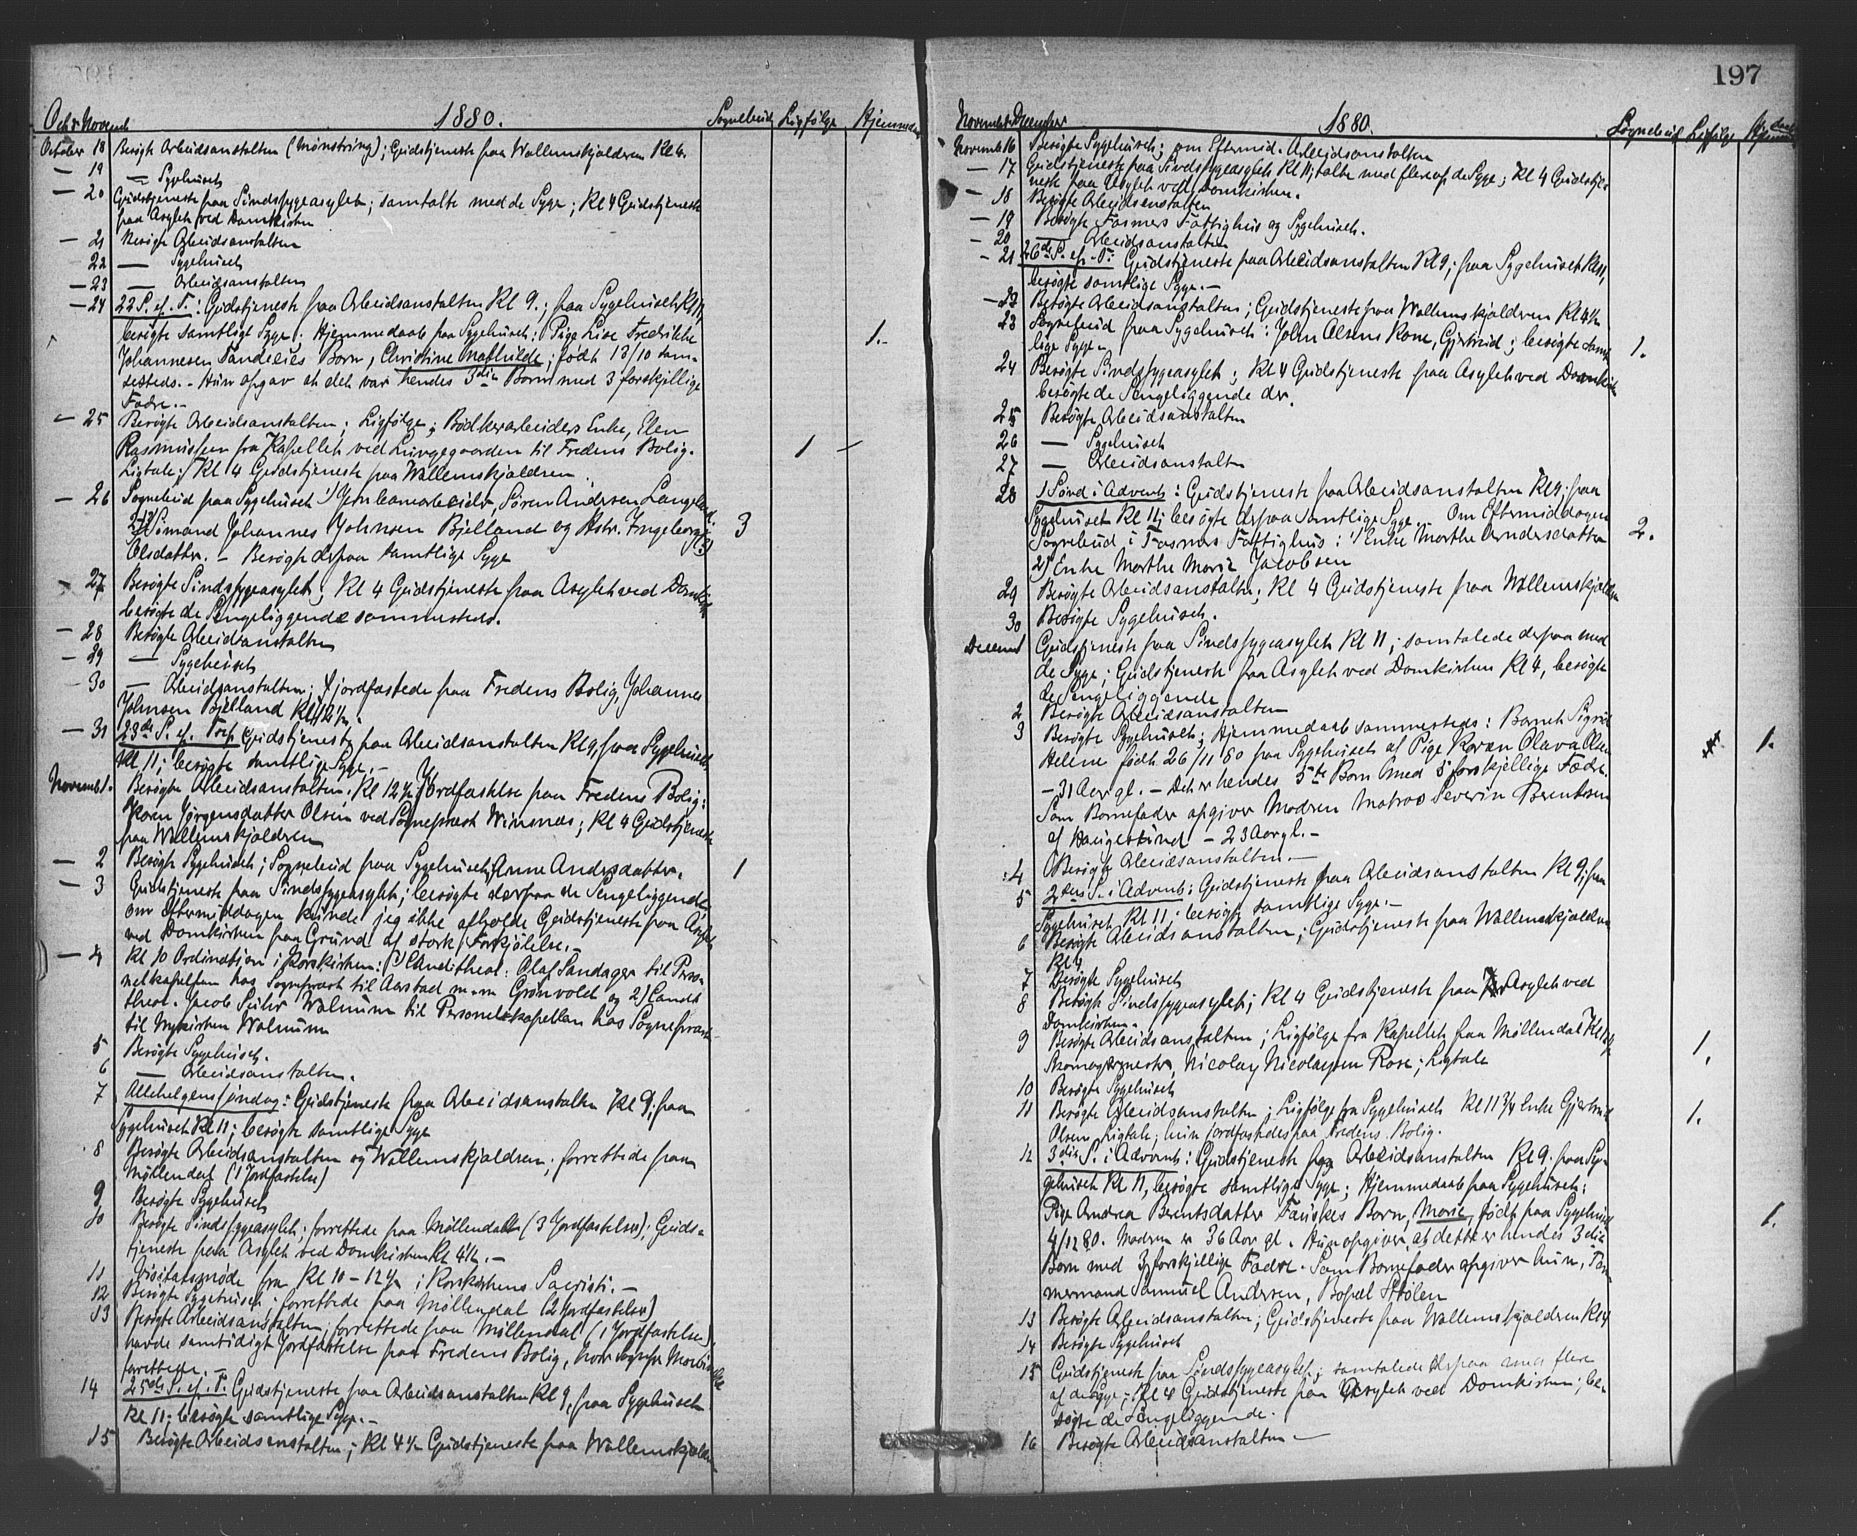 197
Octr Novemb 1880. Sognebud Ligfølge Hjemmedaab
October 18 Besøgte Arbeidsanstalten (Mønstring); Gudstjeneste paa Wallemskjældren Kl 4.
— 19 — Sygehuset
— 20 Gudstjeneste paa Sindssygeasylet; samtalte med de Syge; Kl 4 Gudstjeneste
paa Asylet ved Domkirken
— 21 Besøgte Arbeidsanstalten
— 22 — Sygehuset
— 23 — Arbeidsanstalten
— 24 22 S. ef. T.: Gudstjeneste paa Arbeidsanstalten Kl 9.; paa Sygehuset Kl 11,
besøgte samtlige Syge; Hjemmedaab paa Sygehuset: Pige Lise Fredrikke 1.-
Johannesen Tandeeies Barn, Christine Mathilde; født 13/10 sam-
mesteds. - Hun opgav at det var hendes 3die Barn med 3 forskjellige
Fædre. -
— 25 Besøgte Arbeidsanstalten; Ligfølge; Bødkerarbeiders Enke, Elen
Rasmussen fra Kapellet ved Lungegaarden til Fredens Bolig. 1 —
Ligtale; Kl 4 Gudstjeneste paa Wallemskjældren
— 26 Sognebud paa Sygehuset 1) Jernbanearbeider, Søren Andersen Langeland.
2) Sømand Johannes Johnsen Bjelland og Hstr. Ingeborg 3) 3
Olsdatter. - Besøgte derpaa samtlige Syge
— 27 Besøgte Sindssygeasylet; Kl 4 Gudstjeneste paa Asylet ved Domkirk
besøgte de Sengeliggende sammesteds.
— 28 Besøgte Arbeidsanstalten
— 29 — Sygehuset
— 30 — Arbeidsanstalten; Jordfæstede paa Fredens Bolig, Johannes
Johnsen Bjelland Kl 12½.
— 31 23de S. ef. Tref. Gudstjeneste paa Arbeidsanstalten Kl 9, paa Sygehuset
Kl 11; besøgte samtlige Syge. -
Novemb 1. Besøgte Arbeidsanstalten. Kl 12½ Jordfæstelse paa Fredens Bolig:
Karen Jørgensdatter Olsen ved Sognepræst Winsnes; Kl 4 Gudstjeneste
paa Wallemskjældren
— 2 Besøgte Sygehuset; Sognebud paa Sygehuset: Anne Andersdatter. 1
— 3 Gudstjeneste paa Sindssygeasylet; besøgte derpaa de Sengeliggende
om Eftermiddagen kunde jeg ikke afholde Gudstjeneste paa Asylet
ved Domkirken paa Grund af stærk Forkjølelse. -
— 4 Kl 10 Ordination i Korskirken: 1) Cand. theol: Olaf Sandager til Perso-
nelkapellan hos Sognepræst til Aarstad m.m. Grønvold og 2) Candt
theol. Jacob Walnum til Personelkapellan hos Sognepræst
til Nykirken Walnum
5 Besøgte Sygehuset.
6 — Arbeidsanstalten.
7 Allehelgenssøndag: Gudstjeneste paa Arbeidsanstalten Kl 9; paa
Sygehuset Kl 11; besøgte samtlige Syge
8 Besøgte Arbeidsanstalten og Wallemskjældren; forrettede paa
Møllendal (1 Jordfæstelse)
9 Besøgte Sygehuset
10 Besøgte Sindssygeasylet; forrettede paa Møllendal (3 Jordfæstelser); Guds-
tjeneste paa Asylet ved Domkirken Kl 4½. -
11 Visitatsmøde fra Kl 10 - 12½ i Korskirkens Sacristi. -
12 Besøgte Sygehuset; forrettede paa Møllendal (2 Jordfæstelser)
13 Besøgte Arbeidsanstalten; forrettede paa Møllendal (1 Jordfæstelse)
havde samtidigt Jordfæstelse paa Fredens Bolig,
forrettede. -
14 25de S. ef. T. Gudstjeneste paa Arbeidsanstalten Kl 9, paa Sygehuset
Kl 11; besøgte samtlige Syge. -
15 Besøgte Arbeidsanstalten; Kl 4½ Gudstjeneste paa Wallemskjælderen
November December 1880. Sognebud Ligfølge Hjemmedaab
Novemb 16 Besøgte Sygehuset; om Eftermid. Arbeidsanstalten
— 17 Gudstjeneste paa Sindssygeasylet Kl 11; talte med flere af de Syge; Kl 4 Gudstje-
neste paa Asylet ved Domkirken.
— 18 Besøgte Arbeidsanstalten
— 19 Besøgte Fasmers Fattighus og Sygehuset.
— 20 — Arbeidsanstalten
— 21 26de S. ef. T: Gudstjeneste paa Arbeidsanstalten Kl 9; paa Sygehuset Kl 11,
besøgte samtlige Syge. -
— 22 Besøgte Arbeidsanstalten; Gudstjeneste paa Wallemskjældren Kl 4½
23 Sognebud paa Sygehuset: John Olsens Kone, Gjertrud; besøgte samt- 1.
lige Syge -
24 Besøgte Sindssygeasylet; Kl 4 Gudstjeneste paa Asylet ved Domkirk
besøgte de Sengeliggende der.
25 Besøgte Arbeidsanstalten
26 — Sygehuset
27 — Arbeidsanstalt
28 1 Sønd i Advent: Gudstjeneste paa Arbeidsanstalten Kl 9; paa
Sygehuset Kl 11; besøgte derpaa samtlige Syge. - Om Eftermiddagen
Sognebud i Fasmers Fattighus: 1) Enke Marthe Andersdatter 2.
2) Enke Marthe Marie Jacobsen
29 Besøgte Arbeidsanstalten; Kl 4 Gudstjeneste paa Wallemskjælderen
30 Besøgte Sygehuset.
Decemb 1 Gudstjeneste paa Sindssygeasylet Kl 11; samtalede derpaa med
de Syge; Gudstjeneste paa Asylet ved Domkirken Kl 4, besøgte
de Sengeliggende
2 Besøgte Arbeidsanstalten
3 Besøgte Sygehuset; Hjemmedaab sammesteds: Barnet Sigrid
Helene født 26/11 80 paa Sygehuset af Pige Karen Olava Olsen 1.
- 31 Aar gl. - Det er hendes 5te Barn med 5 forskjellige Fædre.
Som Barnefader opgiver Modren Matros Severin Berentsen
af Haugesund - 23 Aar gl. -
4 Besøgte Arbeidsanstalten. -
5 2den S. i Advent: Gudstjeneste paa Arbeidsanstalten Kl 9; paa
Sygehuset Kl 11; besøgte samtlige Syge. -
6 Besøgte Arbeidsanstalten; Gudstjeneste paa Wallemskjældren
Kl 4
7 Besøgte Sygehuset
8 Besøgte Sindssygeasylet; Kl 4 Gudstjeneste paa Asylet ved
Domkirken. -
9 Besøgte Arbeidsanstalten; Ligfølge fra Kapellet paa Møllendal 1.
Skomagermester, Nicolay Nicolaysen Rose; Ligtale
10 Besøgte Sygehuset
11 Besøgte Arbeidsanstalten; Ligfølge fra Sygehuset Kl 11 3/4 Enke Gjertrud 1.
Olsen, Ligtale; hun jordfæstedes paa Fredens Bolig.
12 3die S. i Advent: Gudstjeneste paa Arbeidsanstalten Kl 9. paa Sy-
gehuset Kl 11, besøgte samtlige Syge; Hjemmedaab paa Sygehuset:
Pige Andrea Berentsdatter Fauskes Barn, Marie, født paa Sygehuset 1.
4/12 80. Modren er 36 Aar gl. Hun opgiver, at dette er hendes 3die
Barn med 3 forskjellige Fædre. Som Barnefader opgiver hun, Tøm-
mermand Samuel Andersen, Bopæl Stølen
13 Besøgte Arbeidsanstalten; Gudstjeneste paa Wallemskjældren Kl 4
14 Besøgte Sygehuset
15 Gudstjeneste paa Sindssygeasylet; samtalede derpaa med flere
af de Syge; Kl 4 Gudstjeneste paa Asylet ved Domkirken; be-
søgte de Sengeliggende.
16 Besøgte Arbeidsanstalten -